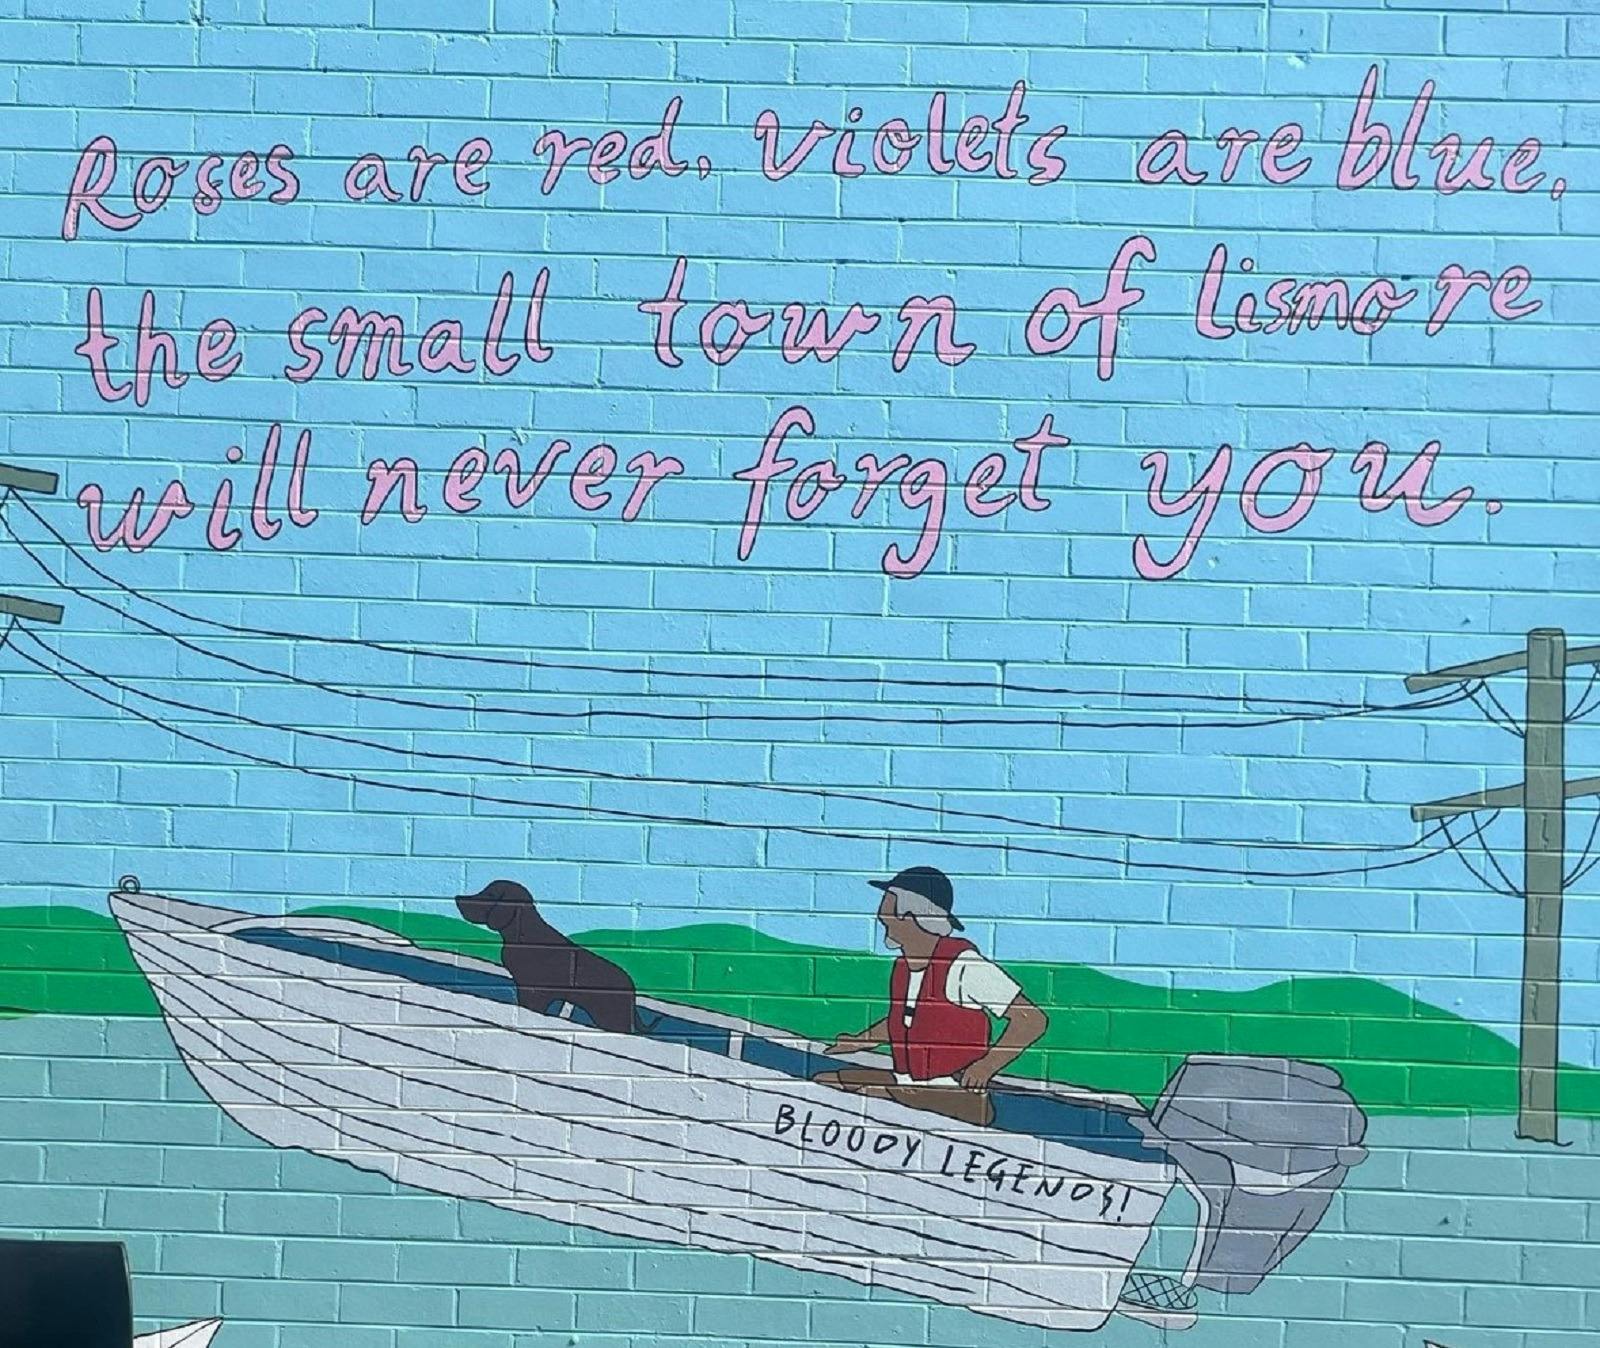 Roses are red. Violets are blue.
the small town of lismore
will never forget you.
BLOODY LEGENDS!